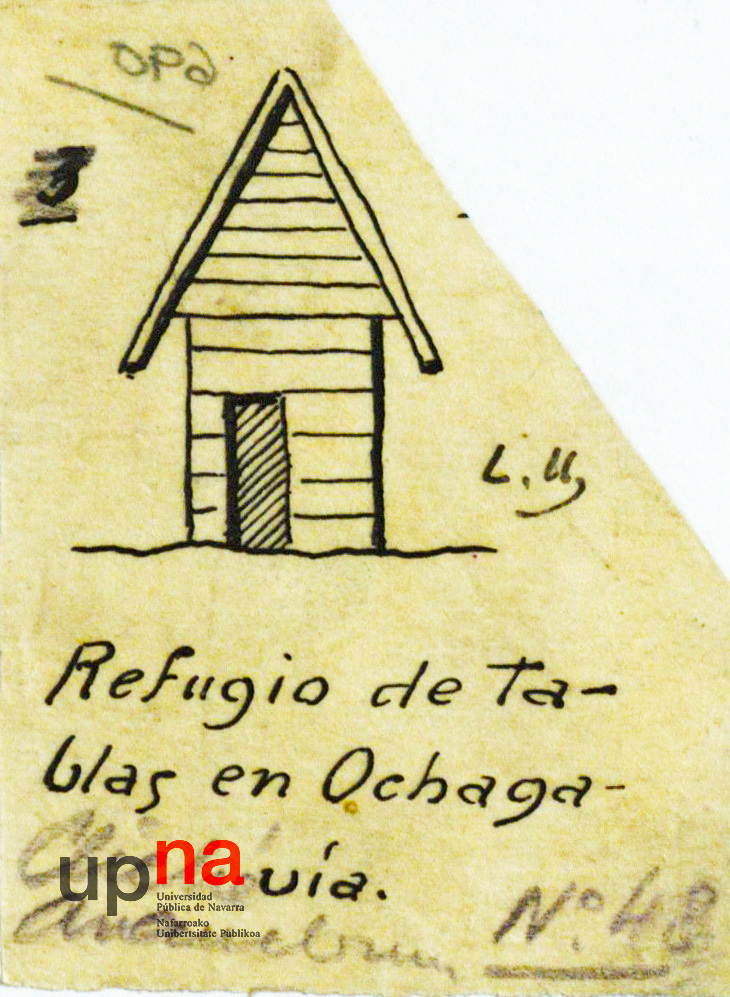 OPA
3
L. U,
Refugio de Ta-
blas en Ochaga-
vía.
upna
Universidad
Pública de Navarra
Nafarroako
Unibertsitate Publikoa
Nº 48